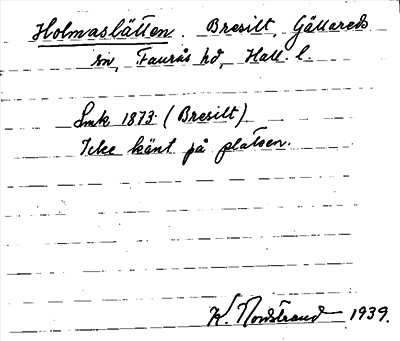 Holmaslätten. Bresilt, Gällareds
sn, Faurås hd, Hall. l.
Smk 1873. (Bresilt)
Icke känt på platsen.
K. Nordstrand 1939.